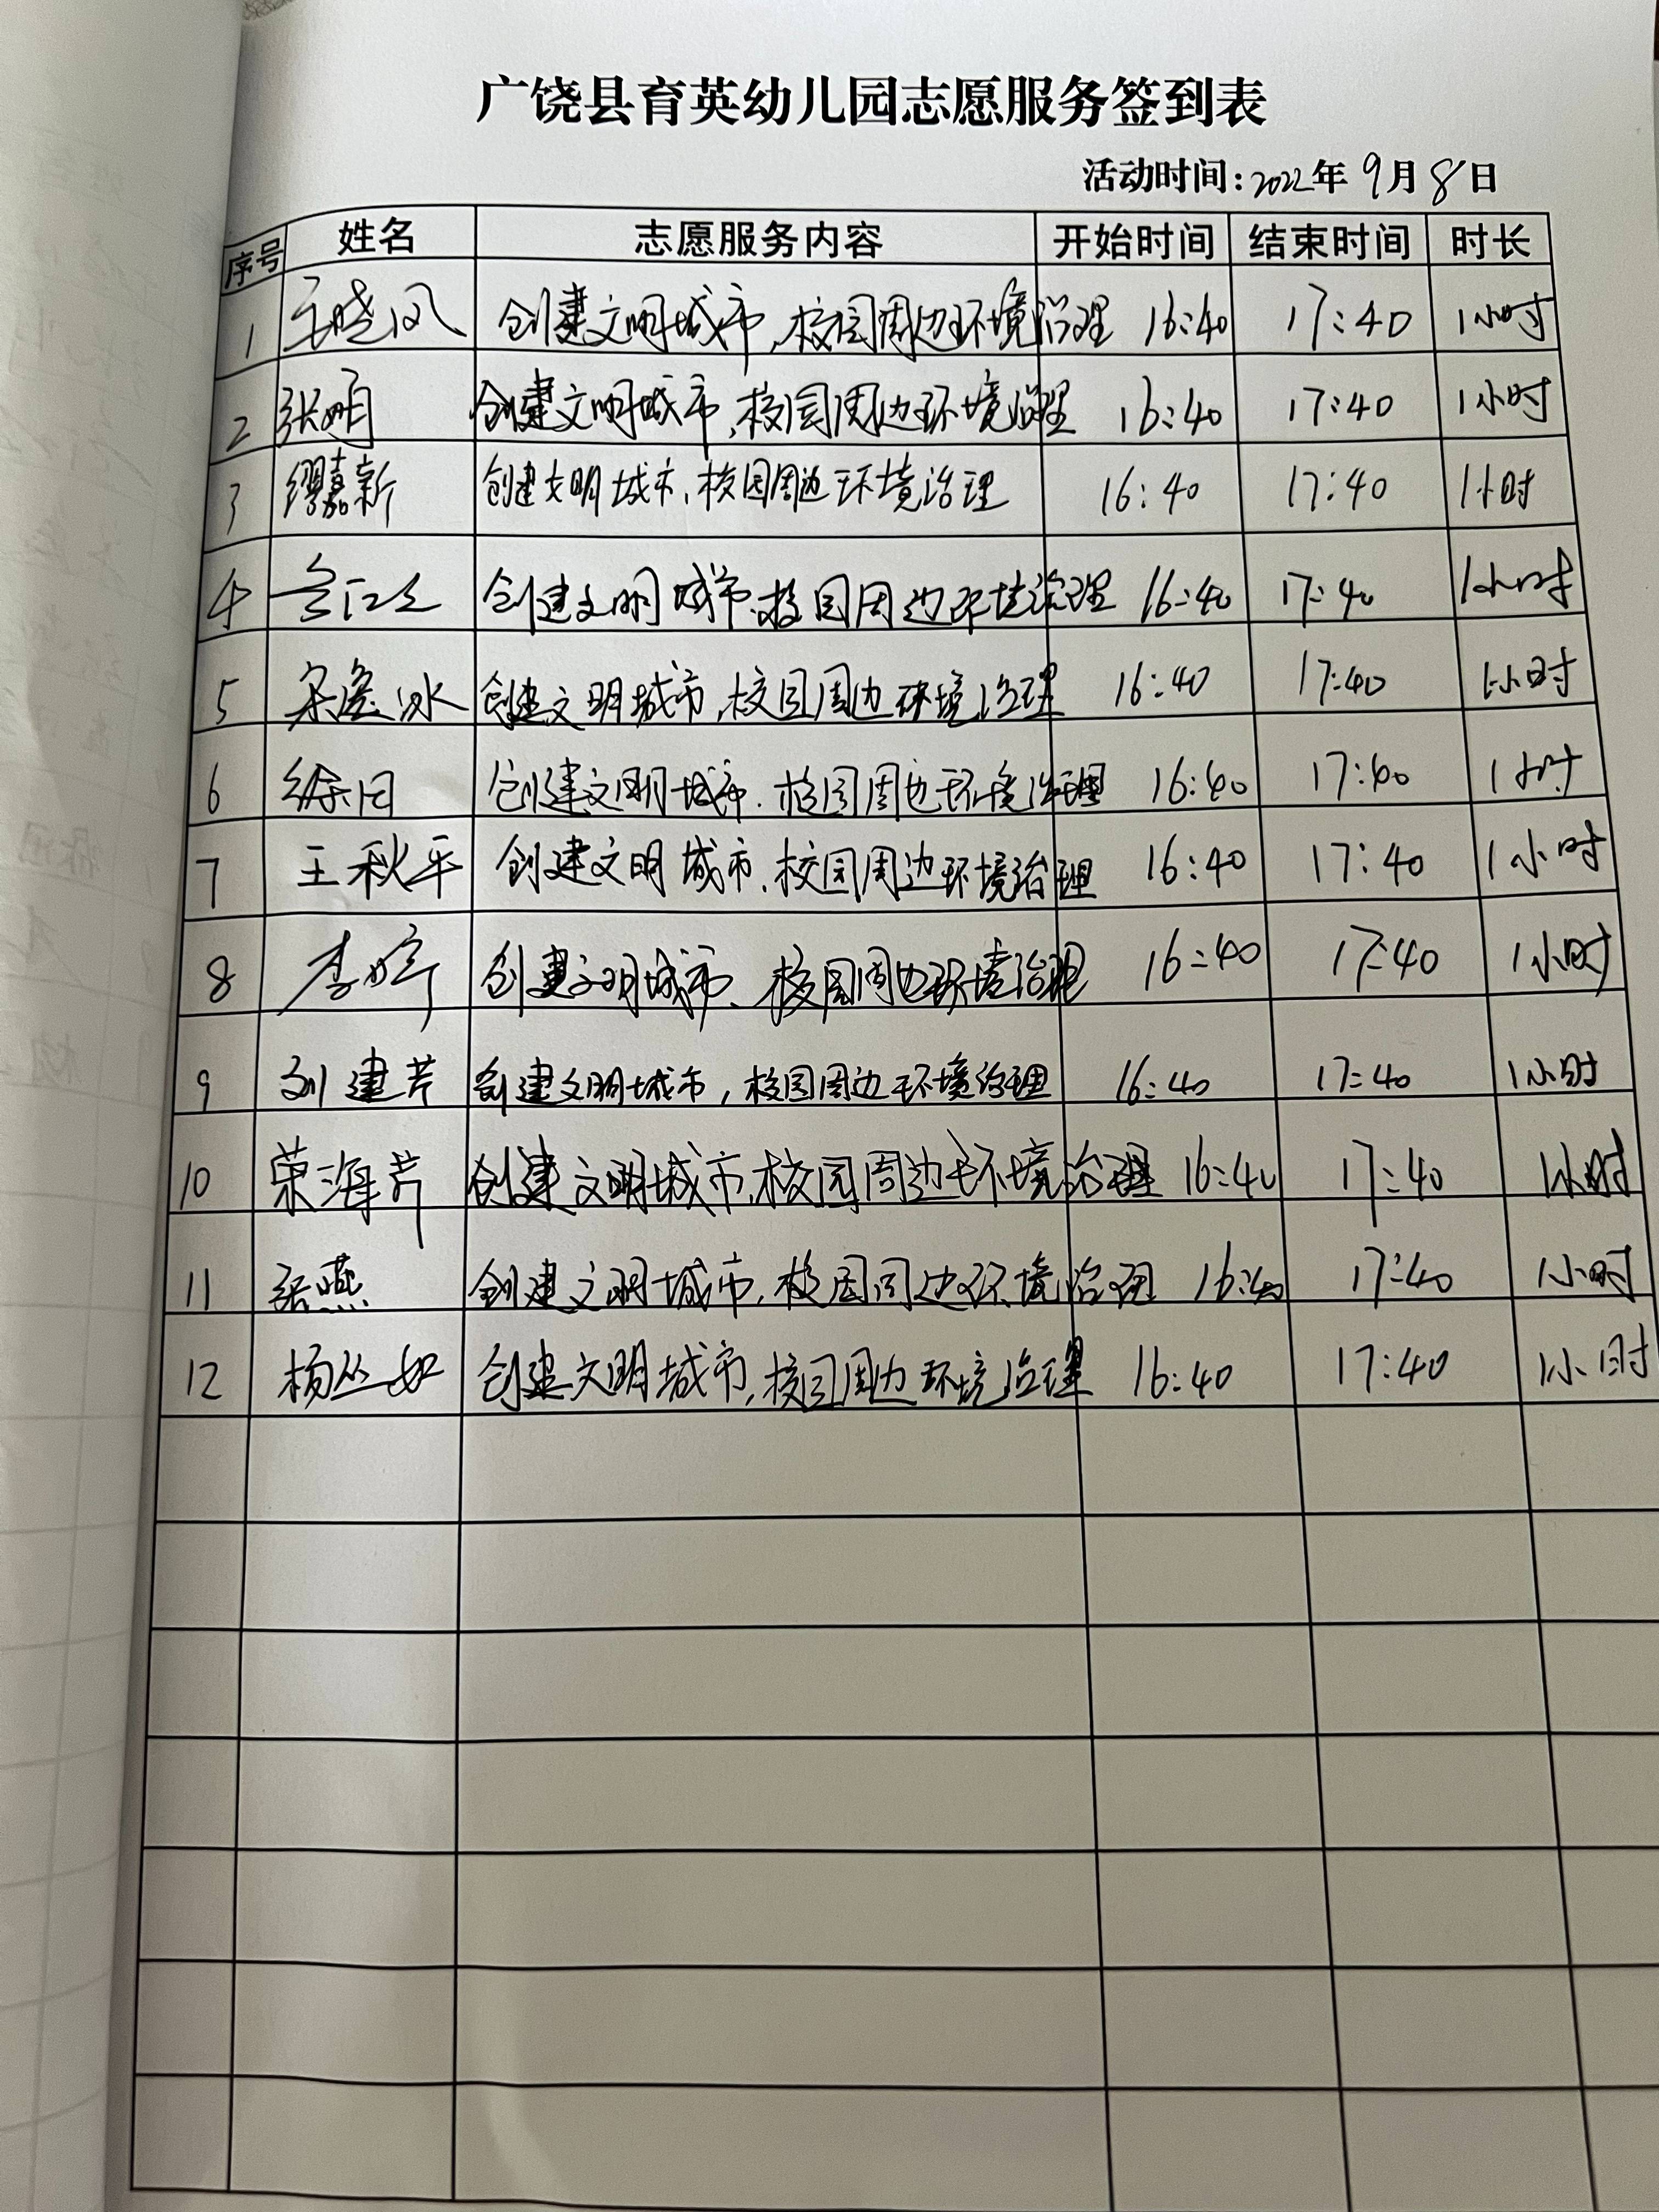 广饶县育英幼儿园志愿服务签到表
活动时间:2022年9月8日
序号 姓名 志愿服务内容 开始时间 结束时间 时长
1 王晓风 创建文明城市,校园周边环境治理 16:40 17:40 1小时
2 张娟 创建文明城市,校园周边环境治理 16:40 17:40 1小时
3 缪嘉新 创建文明城市,校园周边环境治理 16:40 17:40 1小时
4 创建文明城市,校园周边环境治理 16:40 17:40 1小时
5 创建文明城市,校园周边环境治理 16:40 17:40 1小时
6 创建文明城市,校园周边环境治理 16:40 17:40 1小时
7 王秋平 创建文明城市,校园周边环境治理 16:40 17:40 1小时
8 李婷 创建文明城市、校园周边环境治理 16:40 17:40 1小时
9 刘建芹 创建文明城市,校园周边环境治理 16:40 17:40 1小时
10 荣海芹 创建文明城市,校园周边环境治理 16:40 17:40 1小时
11 张燕 创建文明城市,校园周边环境治理 16:40 17:40 1小时
12 杨丛如 创建文明城市,校园周边环境治理 16:40 17:40 1小时